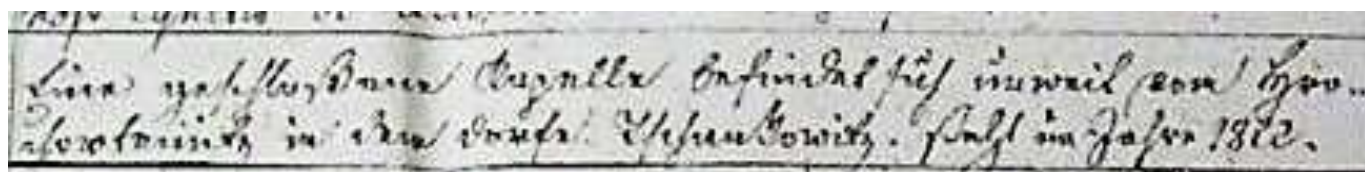 Eine geschloßene Kapelle befindet sich unweit von Hro-
chowteinitz in dem Dorfe Tschankowitz. steht im Jahre 1812.